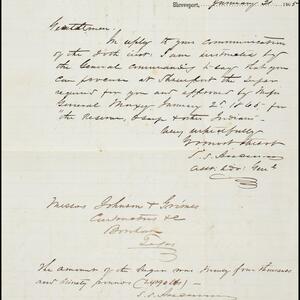 Shreveport, January 31 1865
Gentlemen,
In reply to your communication
of the 30th inst. I am instructed by
the General Commanding to say that you
can procure at Shreveport the Sugar
required for you and approved by Maj.
General Maxey January 25, 1865 for
"the Reserve, Osage & other Indians"
Very respectfully
Yr obdt Servt
S. S. Anderson
Asst. Adjt. Genl
Messrs Johnson & Grimes
Contractors &c
Bonham
Texas
The amount of the Sugar was Twenty four thousand
and Ninety pounds (24090 lbs) —
S. S. Anderson